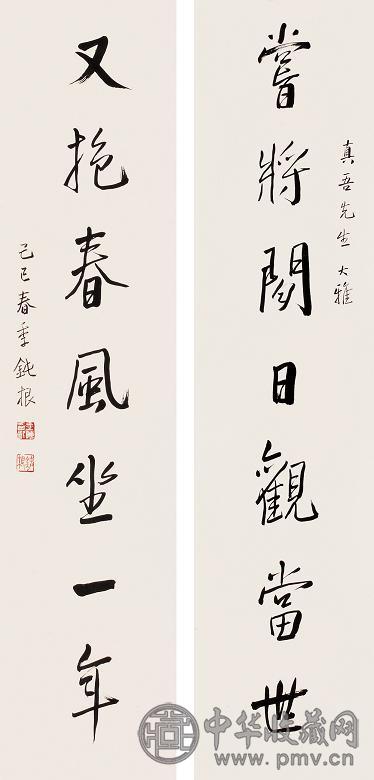 真吾先生大雅
嘗將閱日觀當世
又抱春風坐一年
己巳春季鈍根
中华收藏网
www.pmv.cn